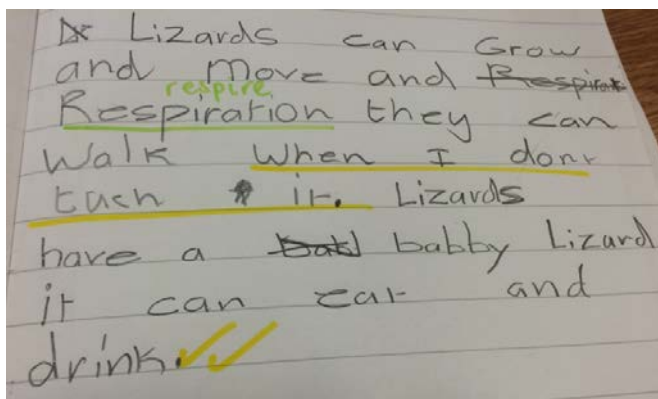 Lizards can Grow
and move and Respirat
respire
Respiration they can
Walk When I dont
tuch it. Lizards
have a babby Lizard
it can eat and
drink.